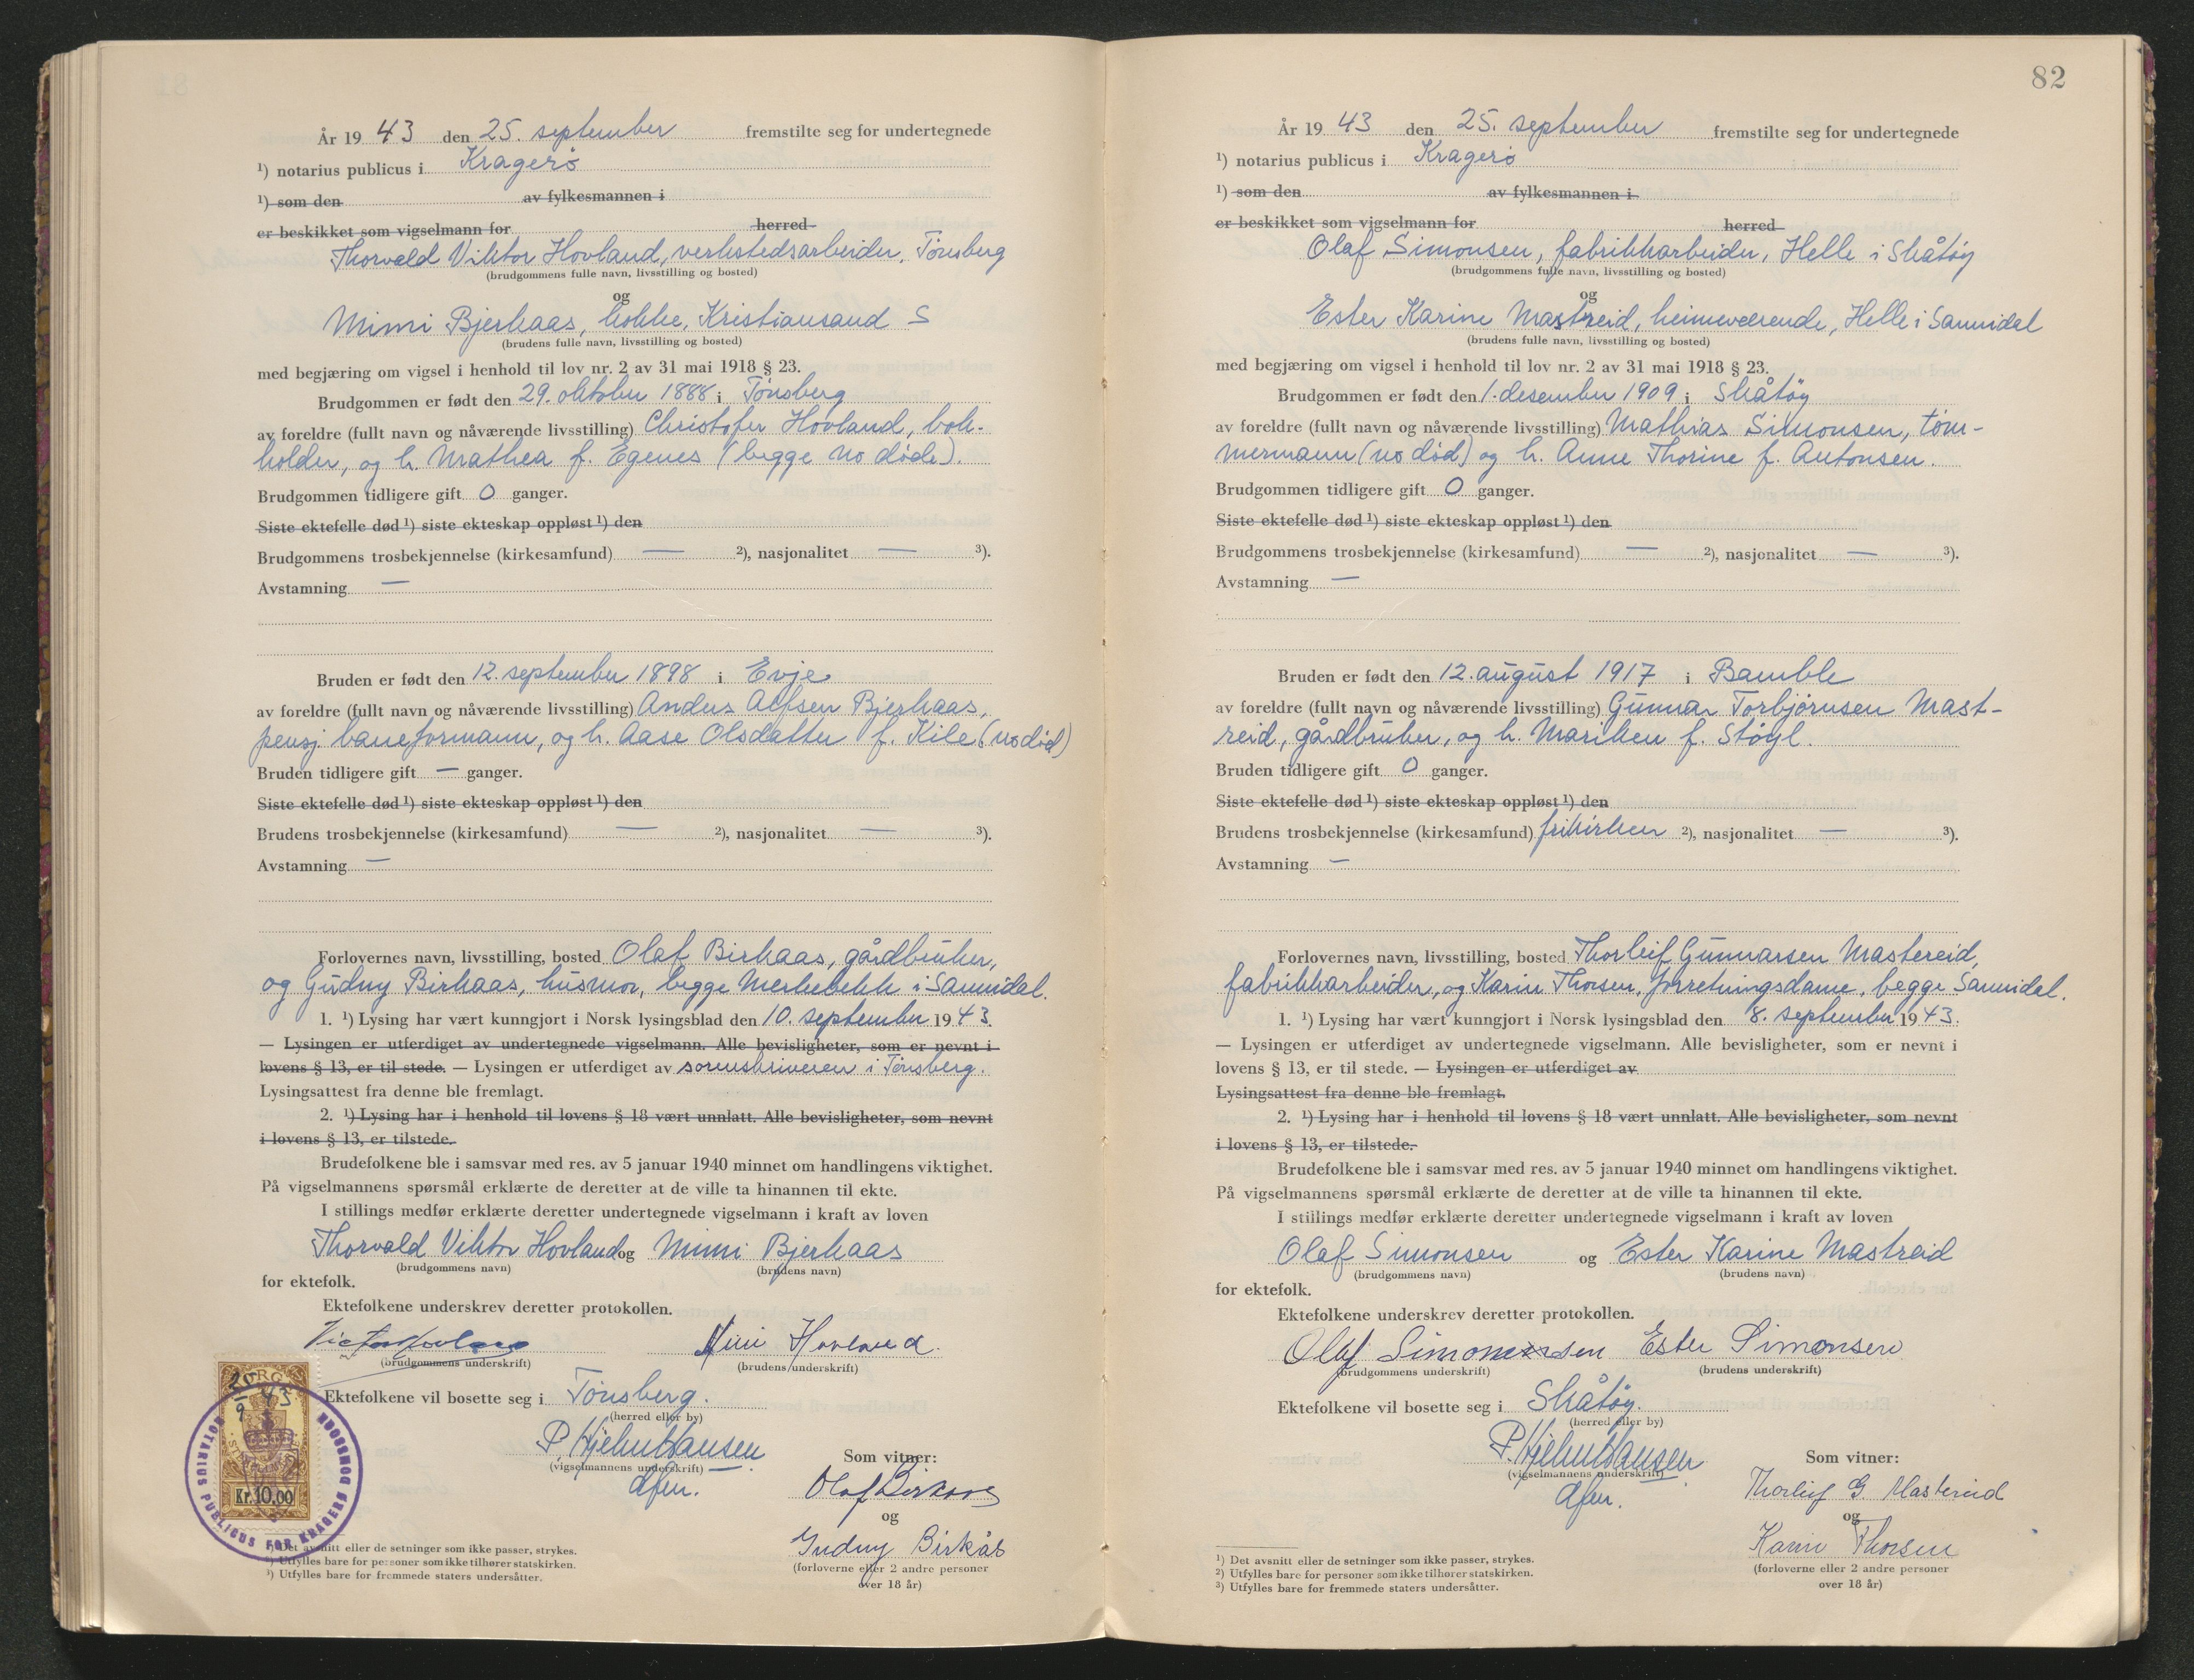 År 19 43 den 25. september fremstilte seg for undertegnede
¹) notarius publicus i Kragerø
¹) som den av fylkesmannen i
er beskikket som vigselmann for herred
Thorvald Viktor Hovland, verkstedsarbeider, Tønsberg
(brudgommens fulle navn, livsstilling og bosted)
og
Mimi Bjerkaas, kokke, Kristiansand S
(brudens fulle navn, livsstilling og bosted)
med begjæring om vigsel i henhold til lov nr. 2 av 31 mai 1918 § 23.
Brudgommen er født den 29. oktober 1888 i Tønsberg
av foreldre (fullt navn og nåværende livsstilling) Christofer Hovland, bok-
holder, og h. Mathea f. Egenes (begge no døde).
Brudgommen tidligere gift 0 ganger.
Siste ektefelle død ¹) siste ekteskap oppløst ¹) den
Brudgommens trosbekjennelse (kirkesamfund) — ²), nasjonalitet — ³).
Avstamning —
Bruden er født den 12. september 1898 i Evje
av foreldre (fullt navn og nåværende livsstilling) Anders Alfsen Bjerkaas,
pensj. baneformann, og h. Aase Olsdatter f. Kile (no død)
Bruden tidligere gift — ganger.
Siste ektefelle død ¹) siste ekteskap oppløst ¹) den
Brudens trosbekjennelse (kirkesamfund) — ²), nasjonalitet — ³).
Avstamning —
Forlovernes navn, livsstilling, bosted Olaf Birkaas, gårdbruker,
og Gudny Birkaas, husmor, begge Merkebekk i Sannidal.
1. ¹) Lysing har vært kunngjort i Norsk lysingsblad den 10. september 19 43.
— Lysingen er utferdiget av undertegnede vigselmann. Alle bevisligheter, som er nevnt i
lovens § 13, er til stede. — Lysingen er utferdiget av sorenskriveren i Tønsberg.
Lysingsattest fra denne ble fremlagt.
2. ¹) Lysing har i henhold til lovens § 18 vært unnlatt. Alle bevisligheter, som nevnt
i lovens § 13, er tilstede.
Brudefolkene ble i samsvar med res. av 5 januar 1940 minnet om handlingens viktighet.
På vigselmannens spørsmål erklærte de deretter at de ville ta hinannen til ekte.
I stillings medfør erklærte deretter undertegnede vigselmann i kraft av loven
Thorvald Viktor Hovland og Mimi Bjerkaas
(brudgommens navn) (brudens navn)
for ektefolk.
Ektefolkene underskrev deretter protokollen.
Victor Hovland Mimi Hovland.
(brudgommens underskrift) (brudens underskrift)
Ektefolkene vil bosette seg i Tønsberg.
(herred eller by)
P. Hjelm-Hansen
(vigselmannens underskrift)
dfm.
Som vitner:
Olaf Birkaas
og
Gudny Birkås
(forloverne eller 2 andre personer
over 18 år)
25/9 43
Kr. 10.00
NOTARIUS PUBLICUS FOR KRAGERØ DOMSSOGN
¹) Det avsnitt eller de setninger som ikke passer, strykes.
²) Utfylles bare for personer som ikke tilhører statskirken.
³) Utfylles bare for fremmede staters undersåtter.
82
År 19 43 den 25. september fremstilte seg for undertegnede
¹) notarius publicus i Kragerø
¹) som den av fylkesmannen i
er beskikket som vigselmann for herred
Olaf Simonsen, fabrikkarbeider, Helle i Skåtøy
(brudgommens fulle navn, livsstilling og bosted)
og
Ester Karine Mastreid, heimeværende, Helle i Sannidal
(brudens fulle navn, livsstilling og bosted)
med begjæring om vigsel i henhold til lov nr. 2 av 31 mai 1918 § 23.
Brudgommen er født den 1. desember 1909 i Skåtøy
av foreldre (fullt navn og nåværende livsstilling) Mathias Simonsen, tøm-
mermann (no død) og h. Anne Thorine f. Antonsen.
Brudgommen tidligere gift 0 ganger.
Siste ektefelle død ¹) siste ekteskap oppløst ¹) den
Brudgommens trosbekjennelse (kirkesamfund) — ²), nasjonalitet — ³).
Avstamning —
Bruden er født den 12. august 1917 i Bamble
av foreldre (fullt navn og nåværende livsstilling) Gunnar Torbjørnsen Mast-
reid, gårdbruker, og h. Mariken f. Støyl.
Bruden tidligere gift 0 ganger.
Siste ektefelle død ¹) siste ekteskap oppløst ¹) den
Brudens trosbekjennelse (kirkesamfund) frikirken ²), nasjonalitet — ³).
Avstamning —
Forlovernes navn, livsstilling, bosted Thorleif Gunnarsen Mastereid,
fabrikkarbeider, og Karin Thorsen, forretningsdame, begge Sannidal.
1. ¹) Lysing har vært kunngjort i Norsk lysingsblad den 8. september 19 43.
— Lysingen er utferdiget av undertegnede vigselmann. Alle bevisligheter, som er nevnt i
lovens § 13, er til stede. — Lysingen er utferdiget av
Lysingsattest fra denne ble fremlagt.
2. ¹) Lysing har i henhold til lovens § 18 vært unnlatt. Alle bevisligheter, som nevnt
i lovens § 13, er tilstede.
Brudefolkene ble i samsvar med res. av 5 januar 1940 minnet om handlingens viktighet.
På vigselmannens spørsmål erklærte de deretter at de ville ta hinannen til ekte.
I stillings medfør erklærte deretter undertegnede vigselmann i kraft av loven
Olaf Simonsen og Ester Karine Mastreid
(brudgommens navn) (brudens navn)
for ektefolk.
Ektefolkene underskrev deretter protokollen.
Olaf Simonsen Ester Simonsen
(brudgommens underskrift) (brudens underskrift)
Ektefolkene vil bosette seg i Skåtøy.
(herred eller by)
P. Hjelm-Hansen
(vigselmannens underskrift)
dfm.
Som vitner:
Thorleif G. Mastereid
og
Karin Thorsen
(forloverne eller 2 andre personer
over 18 år)
¹) Det avsnitt eller de setninger som ikke passer, strykes.
²) Utfylles bare for personer som ikke tilhører statskirken.
³) Utfylles bare for fremmede staters undersåtter.